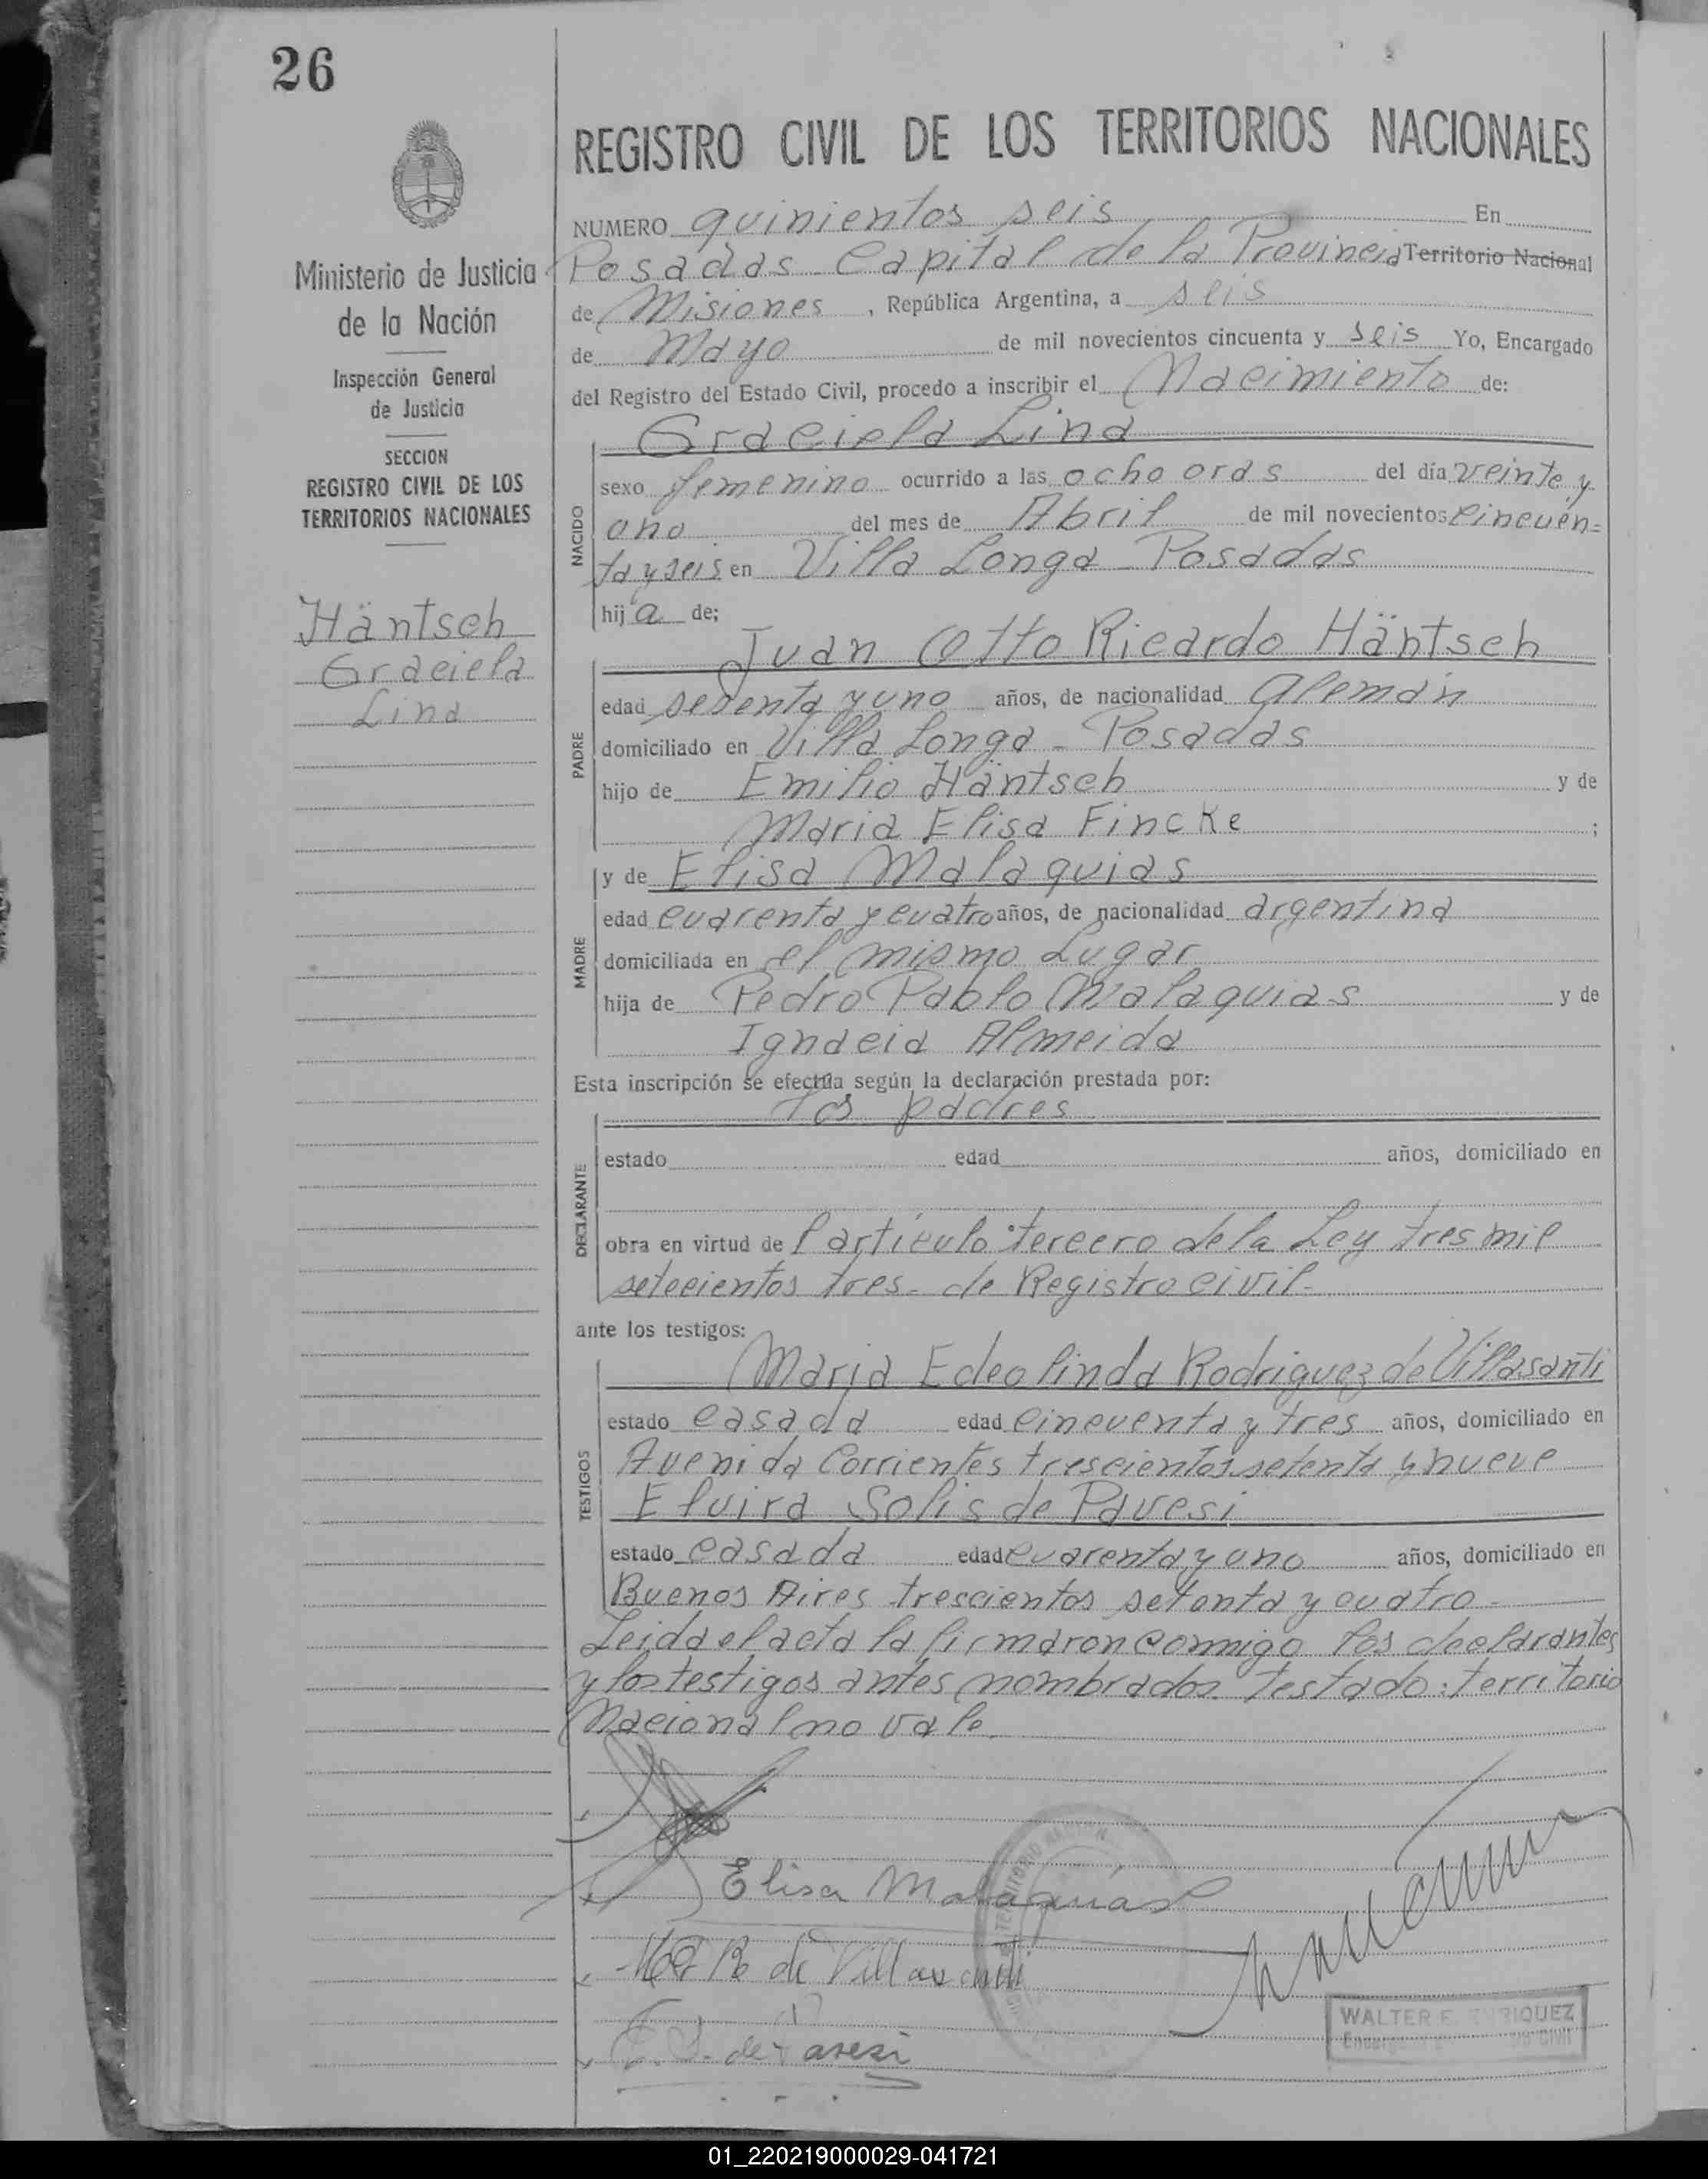 26
REGISTRO CIVIL DE LOS TERRITORIOS NACIONALES
Ministerio de Justicia
de la Nación
Inspección General
de Justicia
SECCION
REGISTRO CIVIL DE LOS
TERRITORIOS NACIONALES
Häntsch
Graciela
Lina
NUMERO quinientos seis En
Posadas Capital de la Provincia Territorio Nacional
de Misiones, República Argentina, a seis
de Mayo de mil novecientos cincuenta y seis Yo, Encargado
del Registro del Estado Civil, procedo a inscribir el Nacimiento de:
Graciela Lina
NACIDO
sexo femenino ocurrido a las ocho oras del día veinte y
uno del mes de Abril de mil novecientos cincuen=
ta y seis en Villa Longa - Posadas
hija de;
Juan Otto Ricardo Häntsch
PADRE
edad sesenta y uno años, de nacionalidad alemán
domiciliado en Villa Longa - Posadas
hijo de Emilio Häntsch y de
Maria Elisa Fincke ;
y de Elisa Malaquias
MADRE
edad cuarenta y cuatro años, de nacionalidad argentina
domiciliada en el mismo Lugar
hija de Pedro Pablo Malaquias y de
Ignacia Almeida
Esta inscripción se efectúa según la declaración prestada por:
los padres
DECLARANTE
estado edad años, domiciliado en
obra en virtud de l'artículo tercero de la Ley tres mil
setecientos tres - de Registro civil -
ante los testigos:
Maria Edeolinda Rodriguez de Villasanti
TESTIGOS
estado casada edad cincuenta y tres años, domiciliado en
Avenida Corrientes trescientos setenta y nueve
Elvira Solis de Pavesi
estado casada edad cuarenta y uno años, domiciliado en
Buenos Aires trescientos setenta y cuatro -
Leida el acta la firmaron conmigo los declarantes
y los testigos antes nombrados. Testado: territorio
Nacional no vale.
Elisa Malaquias
R de Villasanti
E. S. de Pavesi
WALTER E. ENRIQUEZ
01_220219000029-041721